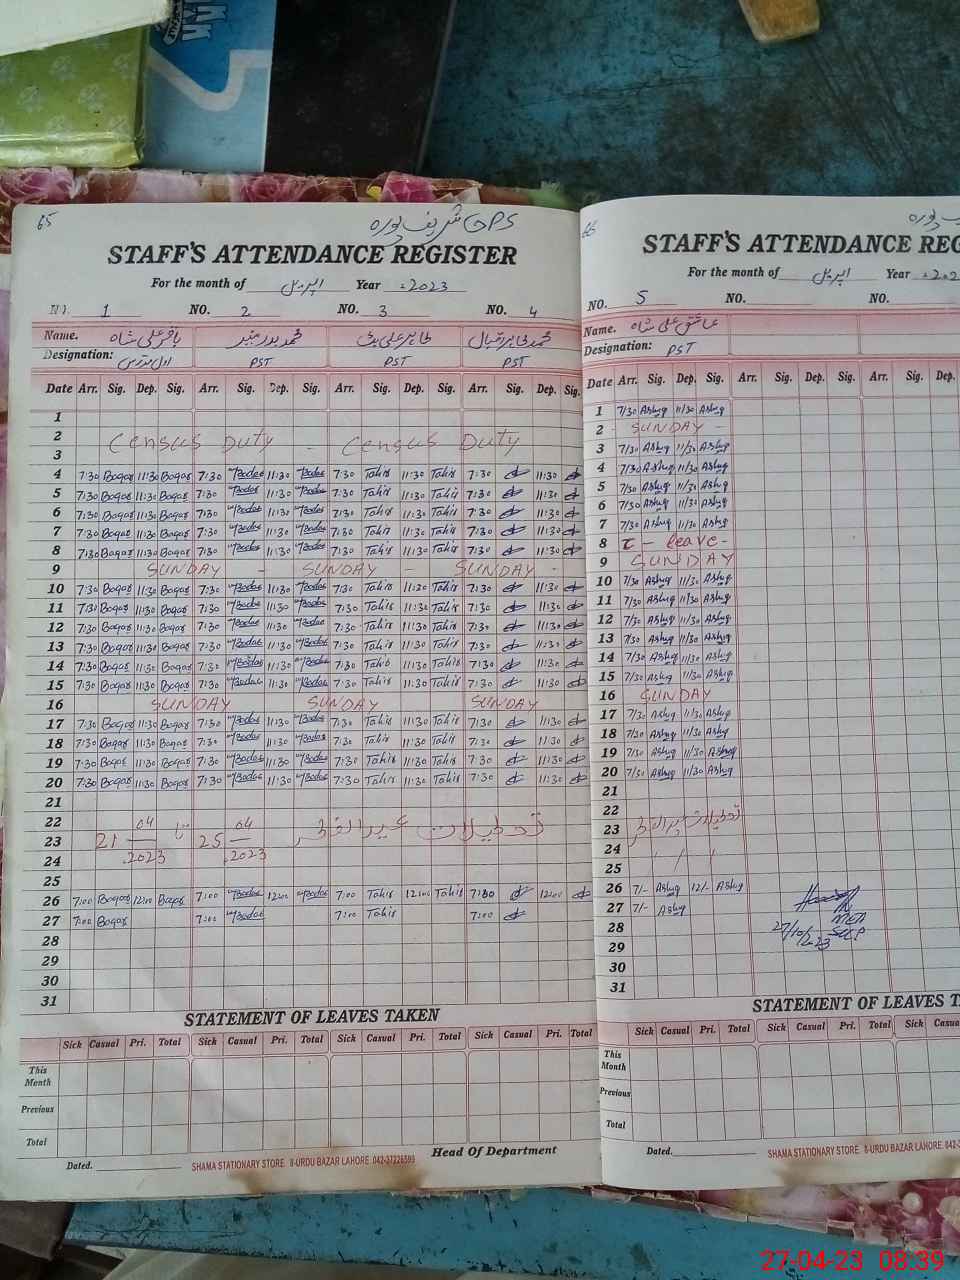 65
GPS شریف پورہ
STAFF'S ATTENDANCE REGISTER
For the month of اپریل Year 2023
NO. 1 NO. 2 NO. 3 NO. 4
Name. باقر علی شاہ محمد بدر منیر طاہر علی بٹ محمد طاہر اقبال
Designation: اول مدرس PST PST PST
Date Arr. Sig. Dep. Sig. Arr. Sig. Dep. Sig. Arr. Sig. Dep. Sig. Arr. Sig. Dep. Sig.
1
2 Census Duty - Census Duty
3
4 7:30 Baqar 11:30 Baqar 7:30 11:30 7:30 Tahir 11:30 Tahir 7:30 11:30
5 7:30 Baqar 11:30 Baqar 7:30 11:30 7:30 Tahir 11:30 Tahir 7:30 11:30
6 7:30 Baqar 11:30 Baqar 7:30 11:30 7:30 Tahir 11:30 Tahir 7:30 11:30
7 7:30 Baqar 11:30 Baqar 7:30 11:30 7:30 Tahir 11:30 Tahir 7:30 11:30
8 7:30 Baqar 11:30 Baqar 7:30 11:30 7:30 Tahir 11:30 Tahir 7:30 11:30
9 SUNDAY - SUNDAY - SUNDAY -
10 7:30 Baqar 11:30 Baqar 7:30 11:30 7:30 Tahir 11:20 Tahir 7:30 11:30
11 7:30 Baqar 11:30 Baqar 7:30 11:30 7:30 Tahir 11:30 Tahir 7:30 11:30
12 7:30 Baqar 11:30 Baqar 7:30 11:30 7:30 Tahir 11:30 Tahir 7:30 11:30
13 7:30 Baqar 11:30 Baqar 7:30 11:30 7:30 Tahir 11:30 Tahir 7:30 11:30
14 7:30 Baqar 11:30 Baqar 7:30 11:30 7:30 Tahir 11:30 Tahir 7:30 11:30
15 7:30 Baqar 11:30 Baqar 7:30 11:30 7:30 Tahir 11:30 Tahir 7:30 11:30
16 SUNDAY SUNDAY SUNDAY
17 7:30 Baqar 11:30 Baqar 7:30 11:30 7:30 Tahir 11:30 Tahir 7:30 11:30
18 7:30 Baqar 11:30 Baqar 7:30 11:30 7:30 Tahir 11:30 Tahir 7:30 11:30
19 7:30 Baqar 11:30 Baqar 7:30 11:30 7:30 Tahir 11:30 Tahir 7:30 11:30
20 7:30 Baqar 11:30 Baqar 7:30 11:30 7:30 Tahir 11:30 Tahir 7:30 11:30
21
22
23 21 04 2023 تا 25 04 2023 تعطیلات عیدالفطر
24
25
26 7:00 Baqar 12:00 Baqar 7:00 12:00 7:00 Tahir 12:00 Tahir 7:30 12:00
27 7:00 Baqar 7:00 7:00 Tahir 7:00
28
29
30
31
STATEMENT OF LEAVES TAKEN
Sick Casual Pri. Total Sick Casual Pri. Total Sick Casual Pri. Total Sick Casual Pri. Total
This Month
Previous
Total
Dated. Head Of Department
SHAMA STATIONARY STORE 8-URDU BAZAR LAHORE 042-37226590
66
STAFF'S ATTENDANCE REG
For the month of اپریل Year 202
NO. 5 NO. NO.
Name. عاشق علی شاہ
Designation: PST
Date Arr. Sig. Dep. Sig. Arr. Sig. Dep. Sig. Arr. Sig. Dep.
1 7/30 Ashiq 11/30 Ashiq
2 - SUNDAY -
3 7/30 Ashiq 11/30 Ashiq
4 7/30 Ashiq 11/30 Ashiq
5 7/30 Ashiq 11/30 Ashiq
6 7/30 Ashiq 11/30 Ashiq
7 7/30 Ashiq 11/30 Ashiq
8 - leave -
9 SUNDAY
10 7/30 Ashiq 11/30 Ashiq
11 7/30 Ashiq 11/30 Ashiq
12 7/30 Ashiq 11/30 Ashiq
13 7/30 Ashiq 11/30 Ashiq
14 7/30 Ashiq 11/30 Ashiq
15 7/30 Ashiq 11/30 Ashiq
16 SUNDAY
17 7/30 Ashiq 11/30 Ashiq
18 7/30 Ashiq 11/30 Ashiq
19 7/30 Ashiq 11/30 Ashiq
20 7/30 Ashiq 11/30 Ashiq
21
22
23 تعطیلات عیدالفطر
24
25
26 7/- Ashiq 12/- Ashiq
27 7/- Ashiq
28
29
30
31
MEA
STATEMENT OF LEAVES T
Sick Casual Pri. Total Sick Casual Pri. Total Sick Casual
This Month
Previous
Total
Dated.
SHAMA STATIONARY STORE 8-URDU BAZAR LAHORE 042-3
27-04-23 08:39